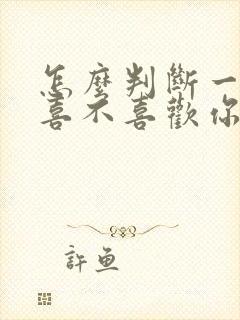 怎麼判斷一
喜不喜歡你
許魚